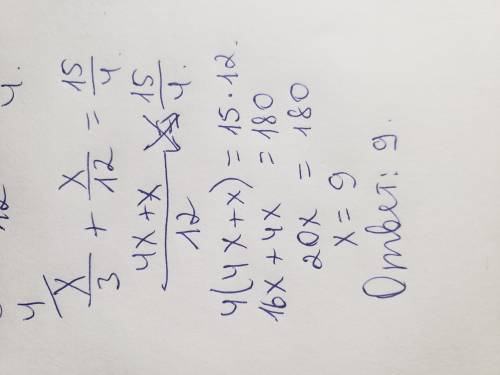 12 4.
4 x/3 + x/12 = 15/4
4x+x/12 15/4.
4(4x+x) = 15·12.
16x + 4x = 180
20x = 180
x = 9
Ответ: 9.